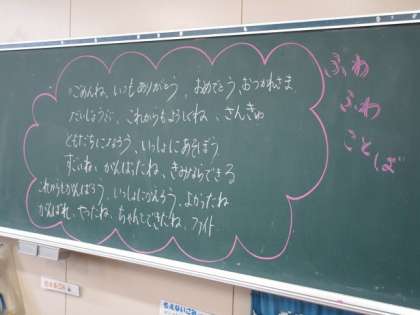 ふわ
ふわ
ことば
ごめんね、いつもありがとう、おめでとう、おつかれさま
だいじょうぶ、これからもよろしくね、さんきゅ
ともだちになろう、いっしょにあそぼう
すごいね、がんばったね、きみならできる
これからもがんばろう、いっしょにかえろう、よかったね
がんばれ、やったね、ちゃんとできたね、ファイト
もえないごみ